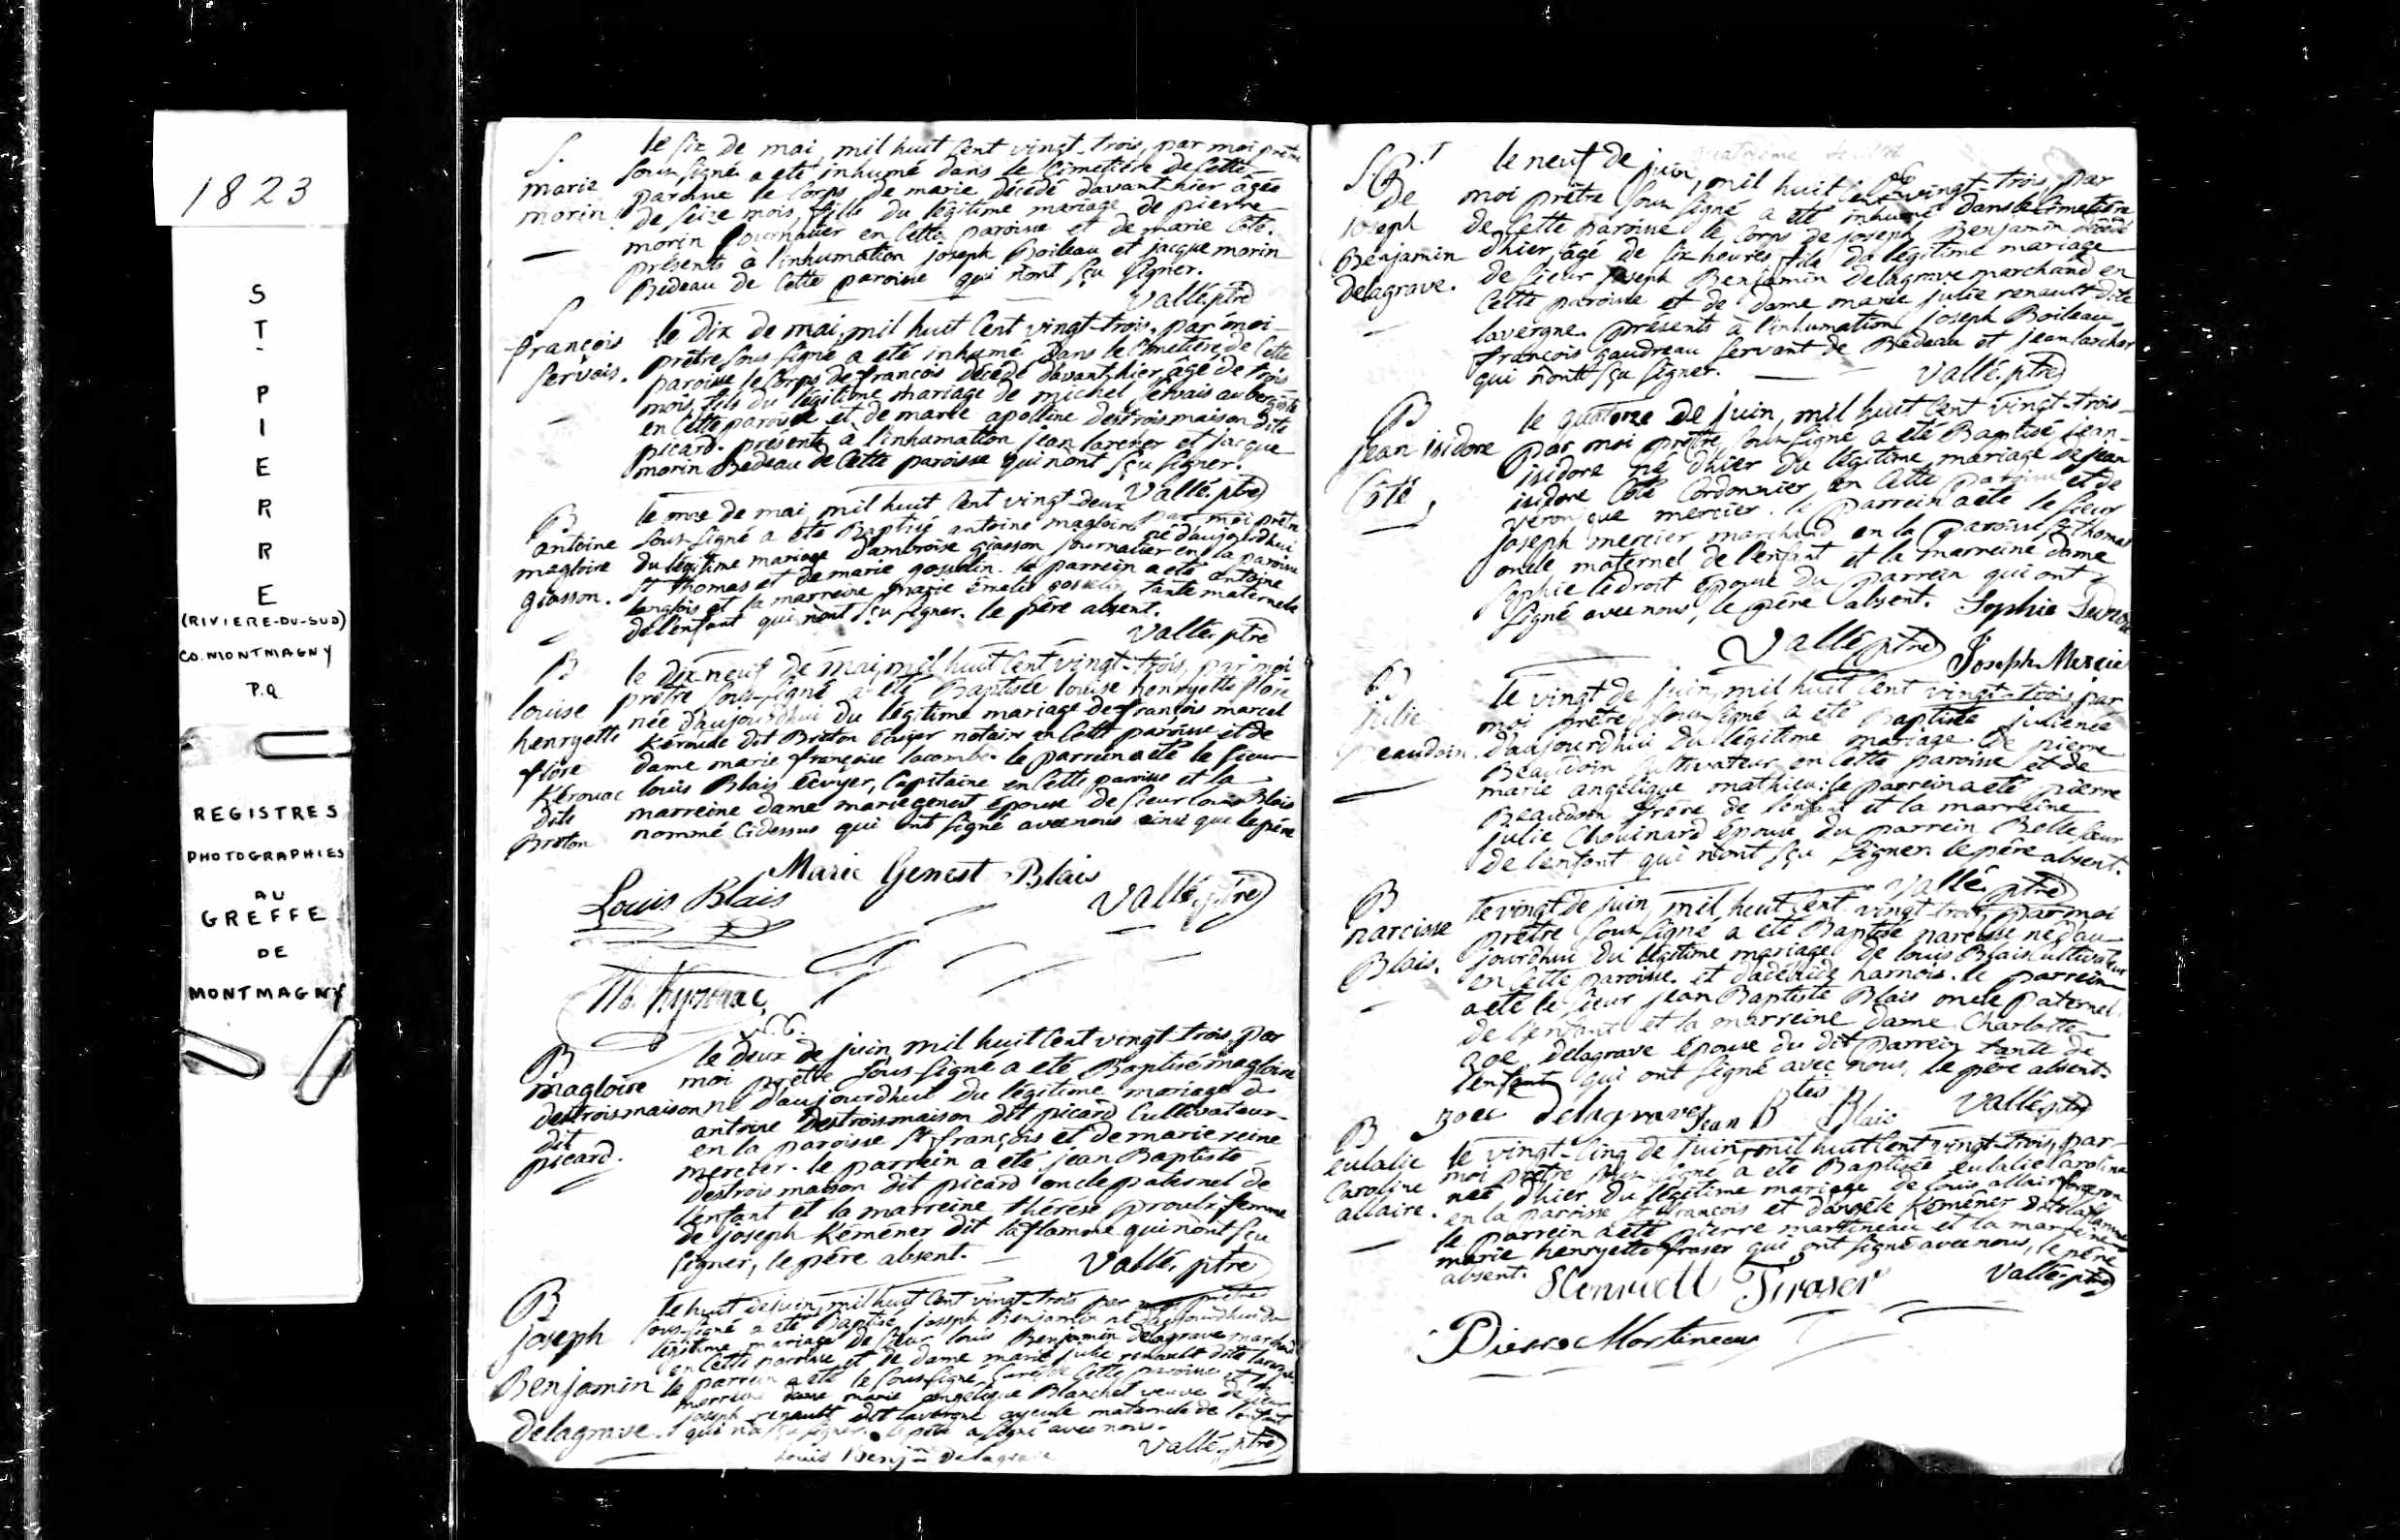 1823
ST. PIERRE
(RIVIERE-DU-SUD)
CO. MONTMAGNY
P.Q
REGISTRES
PHOTOGRAPHIES
AU
GREFFE
DE
MONTMAGNY
S.
marie
morin
le six de mai, mil huit cent vingt-trois, par moi prêtre
soussigné a eté inhumé dans le cimetiére de cette
paroisse le corps de marie décédé davant hier âgée
de seize mois, fille du légitime mariage de pierre
morin journalier en cette paroisse et de marie Côté.
présents à l'inhumation joseph Boileau et jacque morin
Bedeau de cette paroisse qui n'ont sçu signer.
Vallé. ptre
S
françois
servais.
le dix de mai, mil huit cent vingt-trois, par moi
prêtre sous signé a eté inhumé dans le cimetiére de cette
paroisse le corps de françois décédé davant hier âgé de trois
mois, fils du légitime mariage de michel servais aubergiste
en cette paroisse et de marie apolline destroismaison dite
picard. présents a l'inhumation jean larcher et jacque
morin Bedeau de cette paroisse qui n'ont sçu signer.
Vallé. ptre
B
antoine
magloire
giasson.
le onze de mai mil huit cent vingt-deux par moi prêtre
sous-signé a eté Baptisé antoine magloire né d'aujourdhui
du légitime mariage d'ambroise giasson journalier en la paroisse
St thomas et de marie gosselin. le parrein a eté antoine
langlois et la marreine marie émelie gosselin tante maternele
de l'enfant qui n'ont sçu signer. le pére absent.
Vallé. ptre
B
louise
henryette
flore
Kérouac
dite
Breton
le dix neuf de mai, mil huit cent vingt-trois, par moi
prêtre sous-signé a été Baptisée louise henryette flore
née d'aujourdhui du légitime mariage de françois marcel
Kérouac dit Breton écuyer notaire en cette paroisse et de
dame marie françoise lacombe. le parrein a eté le sieur
louis Blais écuyer, Capitaine en cette paroisse et la
marreine dame marie genest épouse de sieur louis Blais
nommé ci dessus qui ont signé avec nous ainsi que le pére
Marie Genest Blais
Louis Blais
Vallé. ptre
N.P.
B
magloire
destroismaison
dit
picard.
le deux de juin mil huit cent vingt-trois, par
moi prêtre sous-signé a eté Baptisé magloire
né d'aujourd'hui du légitime mariage de
antoine Destroismaison dit picard Cultivateur
en la paroisse St françois et de marie reine
mercier. le parrein a eté jean Baptiste
destroismaison dit picard oncle paternel de
l'enfant et la marreine thérése proulx femme
de joseph Kéméner dit laflamme qui n'ont sçu
signer, le pére absent.
Vallé. ptre
B
joseph
Benjamin
delagrave.
le huit de juin, mil huit cent vingt-trois par moi prêtre
sous-signé a eté Baptisé joseph Benjamin né d'aujourdhui du
légitime mariage de sieur louis Benjamin delagrave marchand
en cette paroisse et de dame marie julie renault dite lavergne
le parrein a eté le sous signé curé de cette paroisse et la
marreine dame marie angélique Blanchet veuve de sieur
joseph renault dit lavergne ayeule maternele de l'enfant
qui n'a sçu signer. le pére a signé avec nous.
Vallé. ptre
Louis Benjn Delagrave
S.
De
joseph
Benjamin
delagrave.
le neuf de juin, mil huit cent vingt-trois, par
moi prêtre sous signé a eté inhumé dans le cimetiére
de cette paroisse le corps de joseph Benjamin décédé
d'hier, âgé de six heures, fils du légitime mariage
de sieur joseph Benjamin delagrave marchand en
cette paroisse et de dame marie julie renault dite
lavergne. présents à l'inhumation joseph Boileau
françois gaudreau servant de Bedeau et jean larcher
qui n'ont sçu signer.
Vallé. ptre
B
jean isidore
Côté
le quatorze de juin, mil huit cent vingt-trois
par moi prêtre sous signé a eté Baptisé jean-
isidore né d'hier du légitime mariage de jean
isidore Côté Cordonnier en cette paroisse et de
veronique mercier. le parrein a eté le sieur
joseph mercier marchand en la paroisse St thomas
oncle maternel de l'enfant et la marreine dame
sophie ledroit épouse du parrein qui ont
signé avec nous, le pére absent.
Vallé ptre
Joseph Mercier
B
julie
Beaudoin.
le vingt de juin, mil huit cent vingt-trois par
moi prêtre sous signé a eté Baptisée julie née
d'aujourdhui du légitime mariage de pierre
Beaudoin Cultivateur en cette paroisse et de
marie angélique mathieu. le parrein a eté pierre
Beaudoin frére de l'enfant et la marreine
julie Chouinard épouse du parrein Belle sœur
de l'enfant qui n'ont sçu signer. le pére absent.
Vallé. ptre
B
narcisse
Blais.
le vingt de juin, mil huit cent vingt-trois, par moi
prêtre sous signé a eté Baptisé narcisse né d'au
jourdhui du légitime mariage de louis Blais Cultivateur
en cette paroisse et d'adélaide harnois. le parrein
a eté le sieur jean Baptiste Blais oncle paternel
de l'enfant et la marreine dame Charlotte
zoé delagrave épouse du dit parrein tante de
l'enfant qui ont signé avec nous, le pére absent.
zoee delagrave Jean Btes Blais Vallé ptre
B
eulalie
Caroline
allaire.
le vingt-cinq de juin, mil huit cent vingt-trois, par
moi prêtre sous signé a eté Baptisée eulalie Caroline
née d'hier du légitime mariage de louis allaire forgeron
en la paroisse St françois et d'angéle Kéméner dite laflamme
le parrein a eté pierre martineau et la marreine
marie henryette fraser qui ont signé avec nous, le pére
absent.
Henriett Fraser
Vallé. ptre
Pierre Martineau